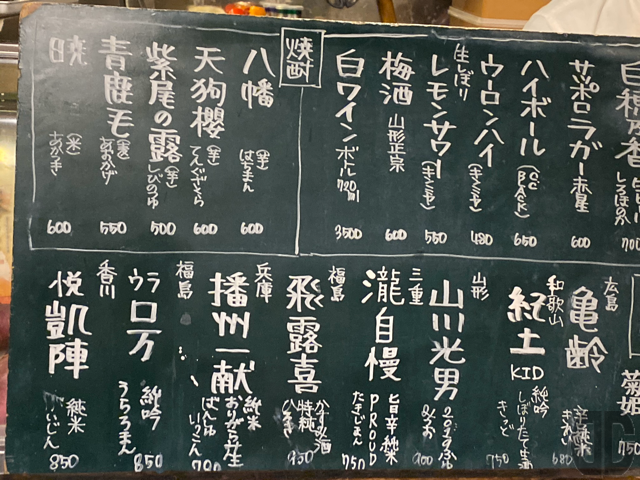 白ほのか
700
サッポロラガー赤星
600
ハイボール
650
ウーロンハイ
(キンミヤ)
480
生しぼり
レモンサワー
(キンミヤ)
550
梅酒
山形正宗
600
白ワイン
ボトル720ml
3500
焼酎
八幡
(芋)
はちまん
600
天狗櫻
(芋)
てんぐざくら
600
紫尾の露
(芋)
しびのつゆ
500
青鹿毛
(麦)
あおかげ
550
(米)
600
750
広島
亀齢
辛口純米
きれい
680
和歌山
紀土
KID
純吟
しぼりたて生酒
きっど
750
山形
山川光男
2019ふゆ
みつお
900
三重
瀧自慢
旨辛純米
PROUD
たきじまん
750
福島
飛露喜
特純
かすみ酒
ひろき
950
兵庫
播州一献
純米
おりがらみ生
ばんしゅう
いっこん
700
福島
ウラ
ロ万
純吟
うらろまん
850
香川
悦凱陣
純米
がいじん
850